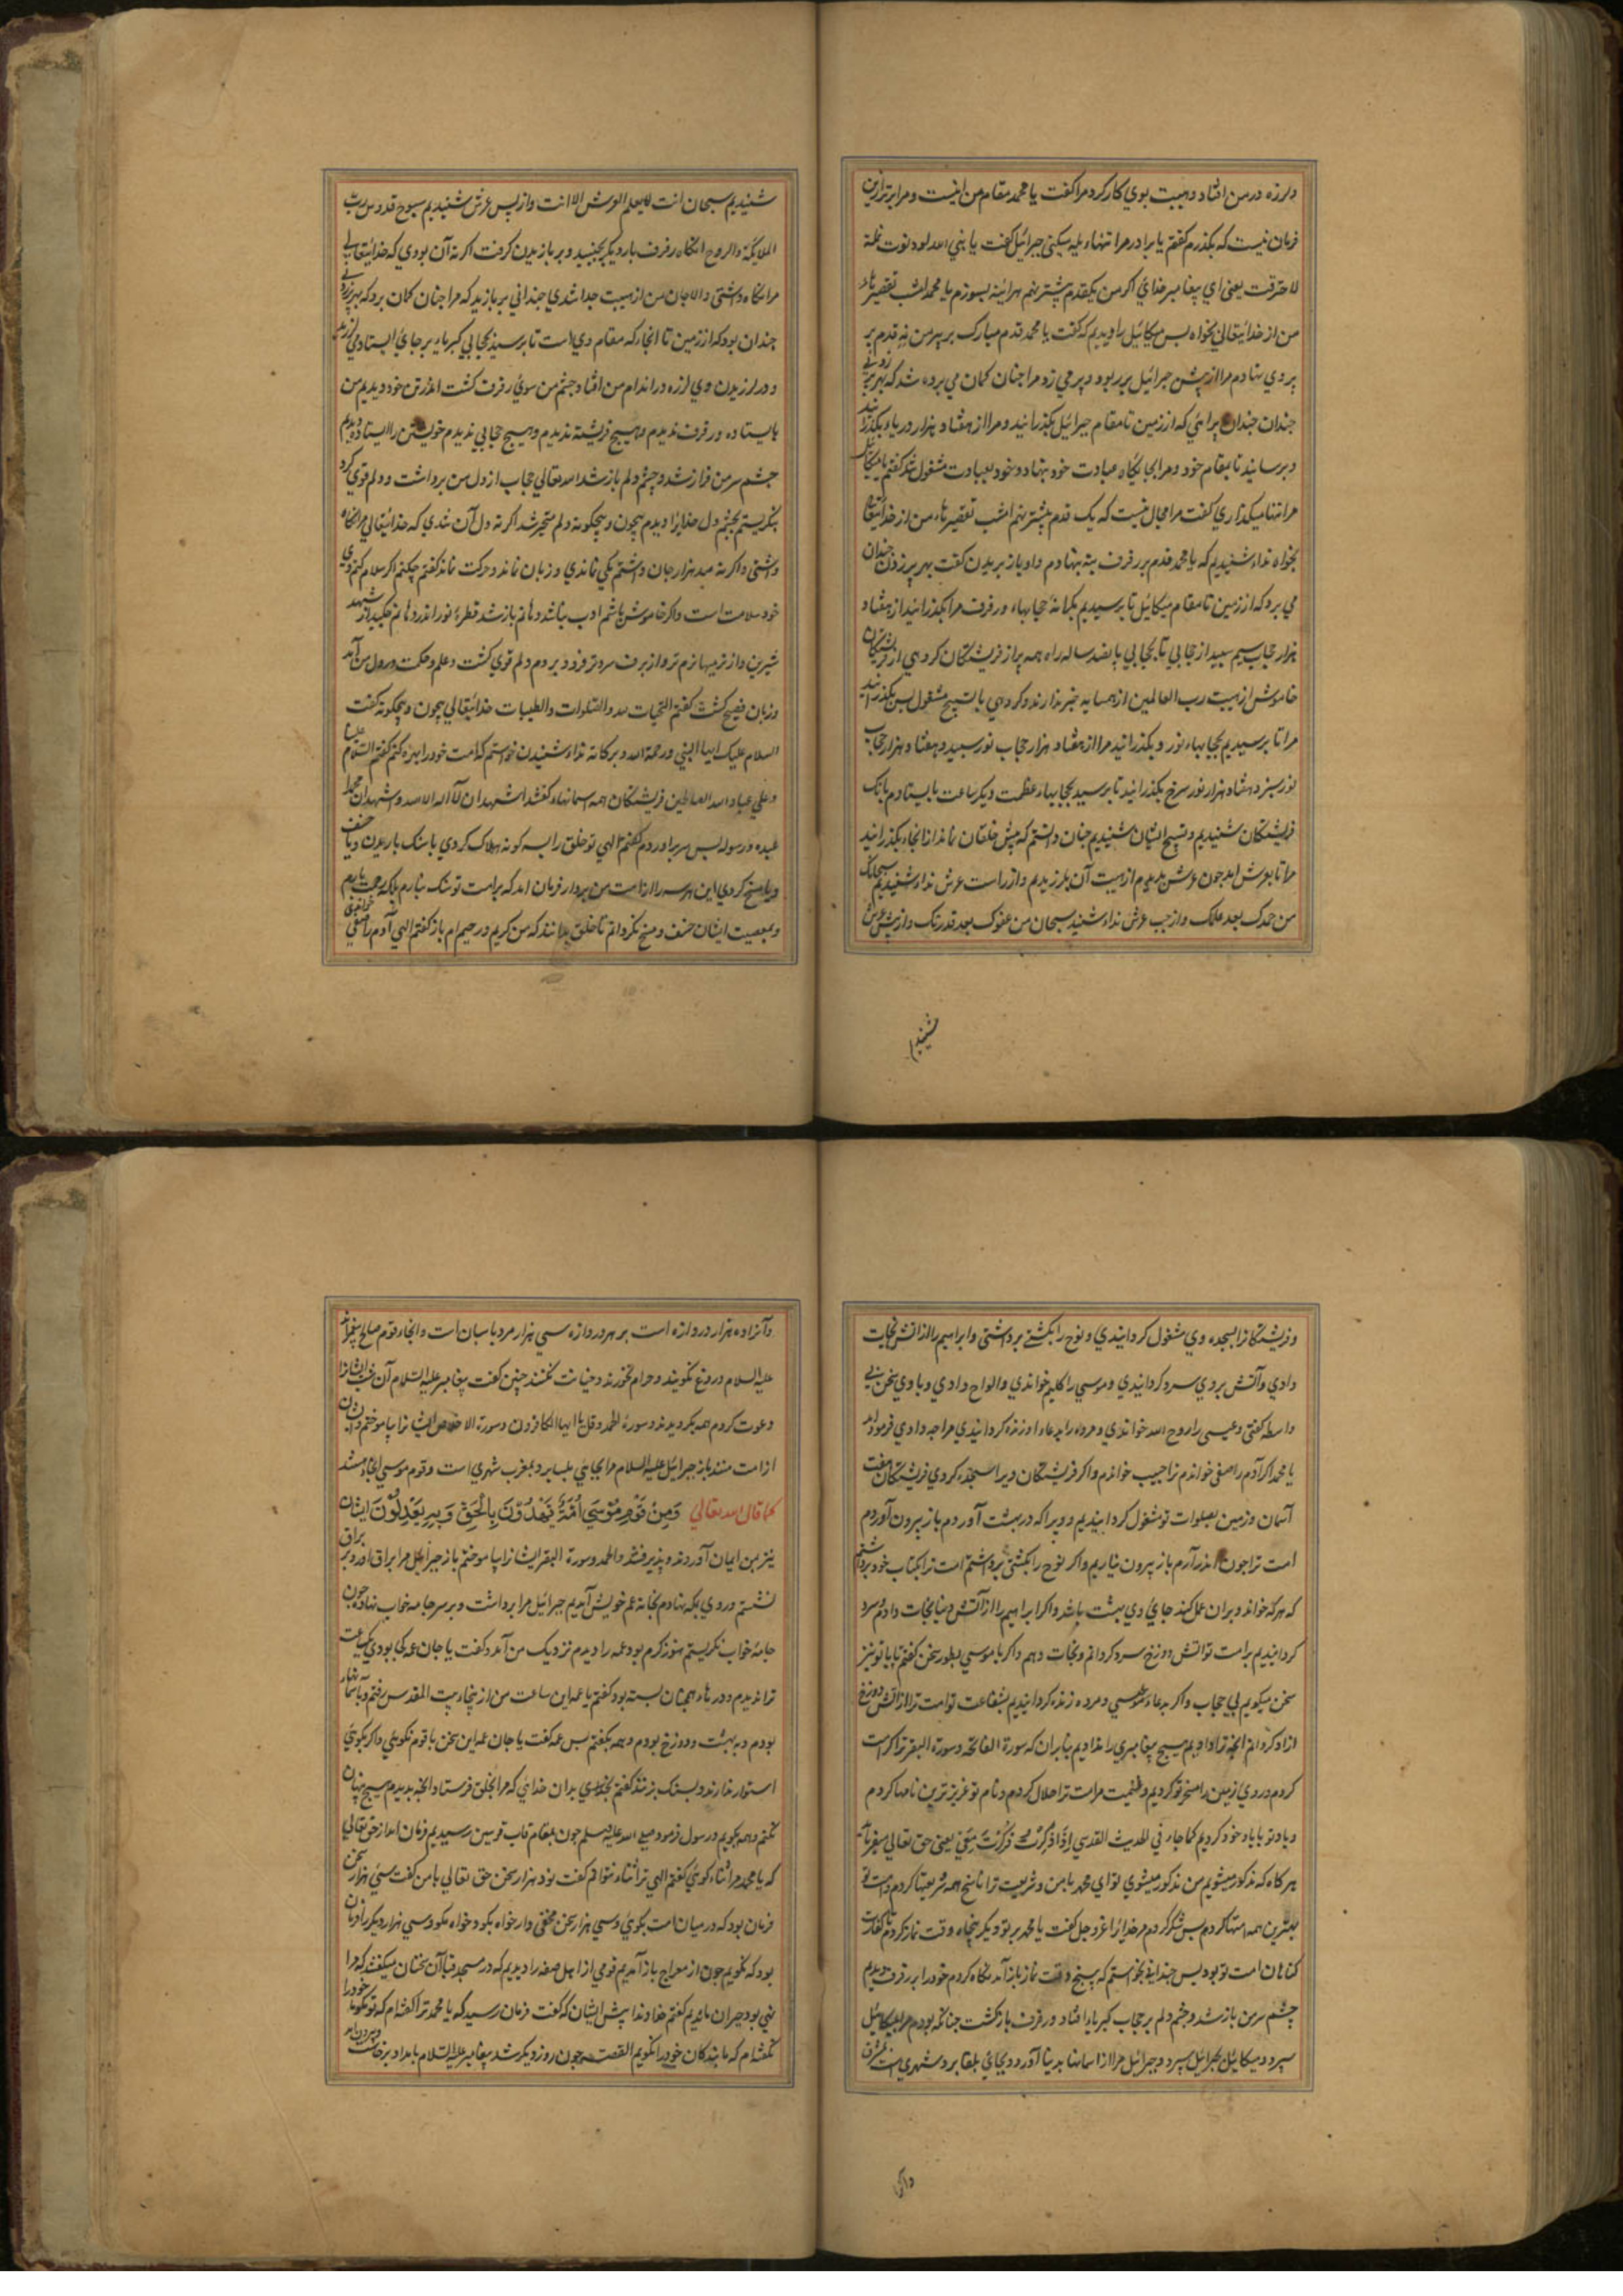 ولرزه در من افتاد و هیبت بوی کار کرد مرا گفت یا محمد مقام من اینست و مرا برتر ازین
فرمان نیست که بگذرم گفتم یا برادر مرا تنها یله میکنی جبرائیل گفت یا نبی الله لو دنوت نملة
لاحترقت یعنی ای پیغامبر خدای اگر من یکقدم پیشتر نهم هرآئینه بسوزم یا محمد امشب تقصیرهاء
من از خدایتعالی بخواه پس میکائیل را دیدم که گفت یا محمد قدم مبارک بر پر من نه قدم بر
پر وی نهادم مرا از پیش جبرائیل بربود و پر می زد مرا چنان کمان می برده شد که بهر پر زدنی
چندان چندان برائی که از زمین تا مقام جبرائیل بگذرانید و مرا از هفتاد هزار دریا بگذرانید
و برسانید تا بمقام خود و مرا بجایگاه عبادت خود بنهاد و خود بعبادت مشغول شد گفتم یا میکائیل
مرا تنها میگذاری گفت مرا مجال نیست که یک قدم پیشتر نهم امشب تقصیرهاء من از خدایتعالی
بخواه نداء شنیدیم که یا محمد قدم بر رفرف بنه بنهادم و او باز بریدن گفت بهر پر زدن چندان
می برد که از زمین تا مقام میکائیل تا برسیدیم بکرانهٔ حجابهاء و رفرف مرا بگذرانید از هفتاد
هزار حجاب سیم سپید از حجابی تا بحجابی پانصد ساله راه همه پر از فریشتکان کروهی از فریشتکان
خاموش از هیبت رب العالمین از همسایه خبر ندارند و کروهی بالتسبیح مشغول پس بگذرانید
مرا تا برسیدیم بحجابهاء نور و بگذرانید مرا از هفتاد هزار حجاب نور سپید و هفتاد هزار حجاب
نور سبز و هفتاد هزار نور سرخ بگذرانید تا برسید بحجابهاء عظمت و یکساعت بایستادم بانک
فریشتکان شنیدیم و تسبیح ایشان شنیدیم چنان دانستم که پیش خلقان نماند از انجاء بگذرانید
مرا تا بعرش آمد چون عرش بدیدم از هیبت آن بلرزیدم و از راست عرش نداء شنیدیم سبحانک
من حمدک بعد علمک و از چپ عرش نداء شنید سبحان من عفوک بعد قدرتک و از پیش عرش
شنیدیم
شنیدیم سبحان انت لایعلم العرش الا انت و از پس عرش شنیدیم سبوح قدوس رب
الملائکة والروح آنگاه رفرف بار دیکر بجنبید و پر باز یدن کرفت اکر نه آن بودی که خدایتعالی
مرا نگاه داشتی والا جان من از هیبت جدا شدی چندانی پر بازید که مرا چنان کمان برد که بهر پر زدنی
چندان بود که از زمین تا انجاء که مقام وی است تا برسید بحجابی کبریاء بر جای ایستاد
و در لرزیدن وی لرزه در اندام من افتاد و چشم من سوی رفرف کشت اندر تن خود دیدیم من
بایستاده و رفرف ندیدم و هیچ فریشته ندیدم و هیچ حجابی ندیدم خویشتن را ایستاده دیدم
چشم سر من فراز شد و چشم دلم باز شد الله تعالی حجاب از دل من برداشت و دلم قوی کرد
بنکریستم بچشم دل خدایرا دیدم بیچون و بیچکونه دلم متحیر شد اکر نه دل آن شدی که خدایتعالی مرا نگاه
داشتی و اکر نه صد هزار جان داشتم یکی نماندی و زبان نماند و حرکت نماند گفتم چکنم اکر سلام کنم وی
خود سلامت است و اکر خاموش باشم ادب نباشد دهانم باز شد قطرهٔ نور اندر دهانم چکید از شهد
شیرین و از نرمیها نرم تر و از برف سردتر فرو بردم دلم قوی کشت و علم و حکمت در دل من آمد
و زبان فصیح کشت گفتم التحیات لله والصلوات والطیبات خدایتعالی بیچون و بیچکونه گفت
السلام علیک ایها النبی ورحمة الله وبرکاته نداء شنیدن خواستم که امت خود را بهره کنم گفتم السلام علینا
وعلی عباد الله الصالحین فریشتکان همه آسمانهاء گفتند اشهد ان لا اله الا الله واشهد ان محمدا
عبده ورسوله پس سر براوردم گفتم الهی تو خلق را بسه کونه هلاک کردی یا سنک باریدن و یا خسف
و یا مسخ کردی این هر سه را از امت من بردار فرمان امد که بر امت تو سنک نبارم بلکه رحمت بارم
و بمعصیت ایشان خسف و مسخ نکردانم تا خلق بدانند که من کریم و رحیم ام باز گفتم الهی آدم را صفی خواندی
و فریشتکانرا بسجده وی مشغول کردانیدی و نوح را بکشتی برداشتی و ابراهیم را از آتش نجات
دادی و آتش بر وی سرد کردانیدی و موسی را کلیم خواندی و الواح دادی و با وی سخن بی
واسطه کفتی و عیسی را روح الله خواندی و مرده را بدعاء او زنده کردانیدی مرا چه دادی فرمود که
یا محمد اکر آدم را صفی خواندم ترا حبیب خواندم و اکر فریشتکان ویرا سجده کردی فریشتکان هفت
آسمان و زمین بصلوات تو مشغول کردانیدیم و ویرا که در بهشت آوردم باز بیرون آوردم
امت ترا چون اندر آرم باز بیرون نیاریم و اکر نوح را بکشتی برداشتم امت ترا بکتاب خود برداشتم
که هر که خواند و بران عمل کند جای وی بهشت باشد و اکر ابراهیم را از آتش دنیا نجات دادم و سرد
کردانیدیم بر امت تو آتش دوزخ سرد کردانم و نجات دهم و اکر با موسی بطور سخن کفتم تا با تو نیز
سخن میکویم بی حجاب و اکر بدعاء عیسی مرده زنده کردانیدیم بشفاعت تو امت ترا از آتش دوزخ
ازاد کردانم انچه ترا دادیم هیچ پیغامبری را ندادیم بنابران که سورة الفاتحه و سورة البقر ترا کرامت
کردم و روی زمین را مسخر تو کردیم و غنیمت مر امت ترا حلال کردم و نام تو عزیزترین نامها کردم
و یاد تو با یاد خود کردیم کما جاء فی الحدیث القدسی اذا ذکرت ذکرت معی یعنی حق تعالی میفرماید
هر کاه که مذکور میشویم من مذکور میشوی تو ای محمد با من و شریعت ترا ناسخ همه شریعتها کردم و امت تو
بهترین همه امتها کردم پس شکر کردم مر خدایرا عز و جل گفت یا محمد بر تو دیکر پنجاه وقت نماز کردم تا کفارت
کناهان امت تو بود پس چندانی بخواستم که به پنج وقت نماز باز آمد نکاه کردم خود را بر رفرف دیدم
چشم سر من باز شد و چشم دلم بر حجاب کبریاء افتاد و رفرف باز کشت چنانکه بودم مرا بمیکائیل
سپرد و میکائیل بجبرائیل سپرد و جبرائیل مرا از اسمانها بدنیا آورد و بجائی بلقا برد شهری است بمشرق
و آنرا
و آنرا ده هزار دروازه است بر هر دروازه سی هزار مرد پاسبان است و انجاء قوم صالح پیغمبراند
علیه السلام دروغ نکویند و حرام نخورند و خیانت نکنند چنین گفت پیغامبر علیه السلام آن شب ایشانرا
دعوت کردم همه بکرویدند و سورة الحمد و قل یا ایها الکافرون و سورة الاخلاص ایشانرا بیاموختم و ایشان
از امت منند باز جبرائیل علیه السلام مرا بجائی بلسا برد بمغرب شهری است و قوم موسی انجاء هستند
کما قال الله تعالی وَمِنْ قَوْمِ مُوسَى أُمَّةٌ يَهْدُونَ بِالْحَقِّ وَبِهِ يَعْدِلُونَ ایشان
نیز بمن ایمان آوردند و پذیرفتند والحمد و سورة البقر ایشانرا بیاموختم باز جبرائیل مرا براق اورد بر براق
نشستم و روی بمکه نهادم بخانهٔ عم خویش آمدیم جبرائیل مرا برداشت و بر سر جامه خواب نهاد چون
جامهٔ خواب نکریستم هنوز کرم بود عمه را دیدم نزدیک من آمد و گفت یا جان عمه کجا بودی یکساعت
ترا ندیدم و درهاء همچنان بسته بود گفتم یا عمه این ساعت من از ینجاء بیت المقدس رفتم و بآسمانهاء
بودم و به بهشت و دوزخ بودم و همه بگفتم پس عمه گفت یا جان عمه این سخن با قوم نکوئی و اکر بکوئی
استوار ندارند و بسنک بزنند گفتم بخدای بدان خدائی که مرا بخلق فرستاد انچه بدیدم هیچ پنهان
نکنم و همه بکویم و رسول فرمود صلی الله علیه وسلم چون بمقام قاب قوسین رسیدیم فرمان امد از حق تعالی
که یا محمد مرا ثناء کوئی گفتم الهی ترا ثناء نتوانم گفت نود هزار سخن حق تعالی با من گفت سی هزار سخن
فرمان بود که در میان امت بکوی و سی هزار سخن مخفی دار خواه بکو و خواه مکو و سی هزار دیکر را فرمان
بود که نکویم چون از معراج باز آمدیم قومی از اهل صفه را دیدیم که در مسجد قبا آن سخنان میکفتند که مرا
نهی بود حیران ماندیم گفتم خداوندا پیش ایشان که گفت فرمان رسید که یا محمد ترا گفته‌ام که تو مکو ما خود را
نکفته‌ام که ما بندکان خود را نکویم القصه چون روز دیکر شد پیغامبر علیه السلام بامداد برخاست و بیرون امد